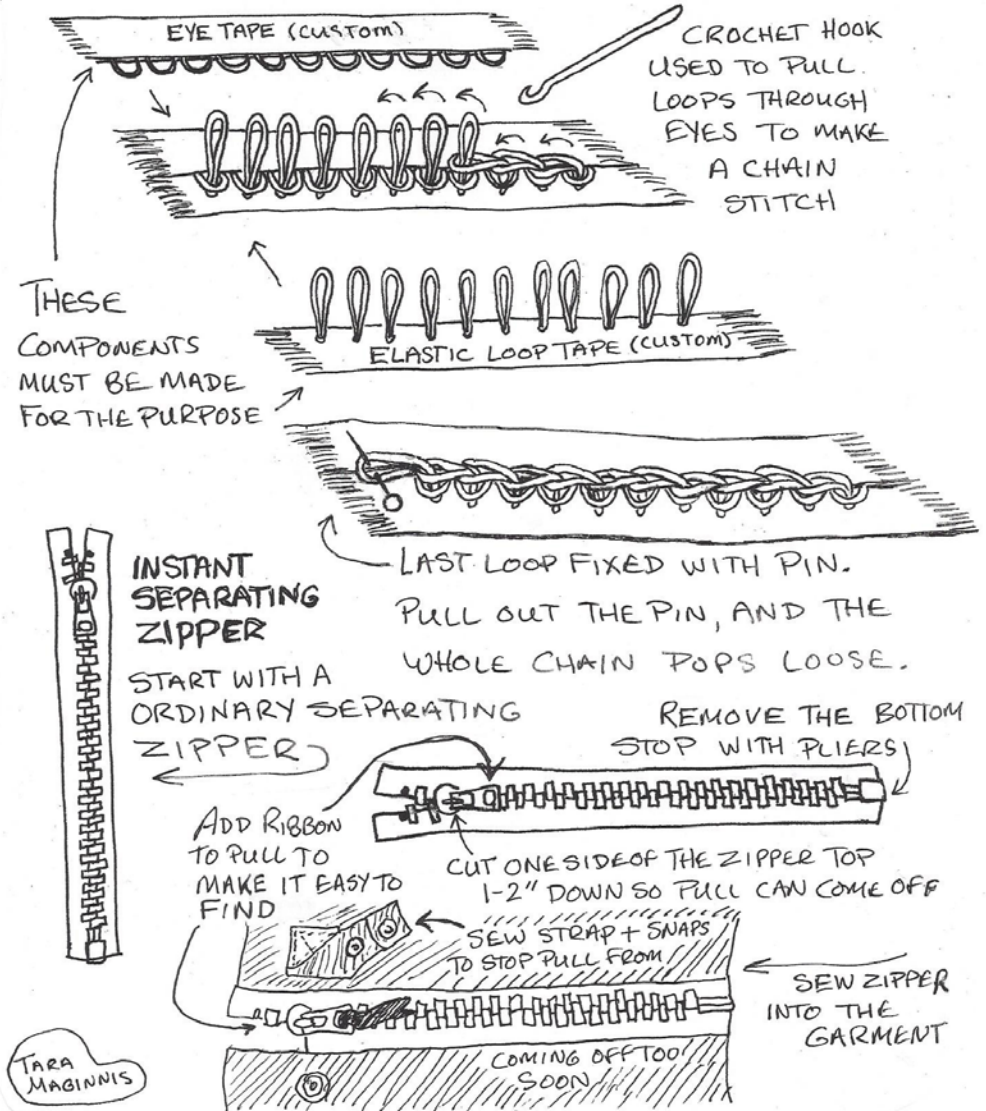 EYE TAPE (CUSTOM)
CROCHET HOOK
USED TO PULL
LOOPS THROUGH
EYES TO MAKE
A CHAIN
STITCH
THESE
COMPONENTS
MUST BE MADE
FOR THE PURPOSE
ELASTIC LOOP TAPE (CUSTOM)
LAST LOOP FIXED WITH PIN.
PULL OUT THE PIN, AND THE
WHOLE CHAIN POPS LOOSE.
INSTANT
SEPARATING
ZIPPER
START WITH A
ORDINARY SEPARATING
ZIPPER
REMOVE THE BOTTOM
STOP WITH PLIERS
ADD RIBBON
TO PULL TO
MAKE IT EASY TO
FIND
CUT ONE SIDE OF THE ZIPPER TOP
1-2" DOWN SO PULL CAN COME OFF
SEW STRAP + SNAPS
TO STOP PULL FROM
COMING OFF TOO
SOON
SEW ZIPPER
INTO THE
GARMENT
TARA
MAGINNIS